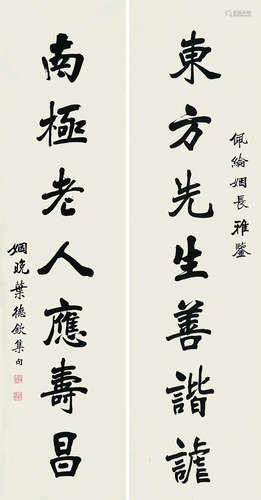 佩綸姻長雅鑒
東方先生善諧謔
南極老人應壽昌
姻晚葉德欽集句